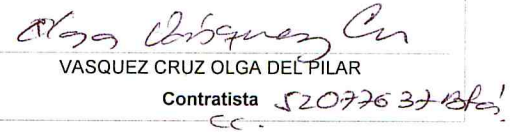 Olga Vásquez Cru
VASQUEZ CRUZ OLGA DEL PILAR
Contratista 52077637 Btá
CC.